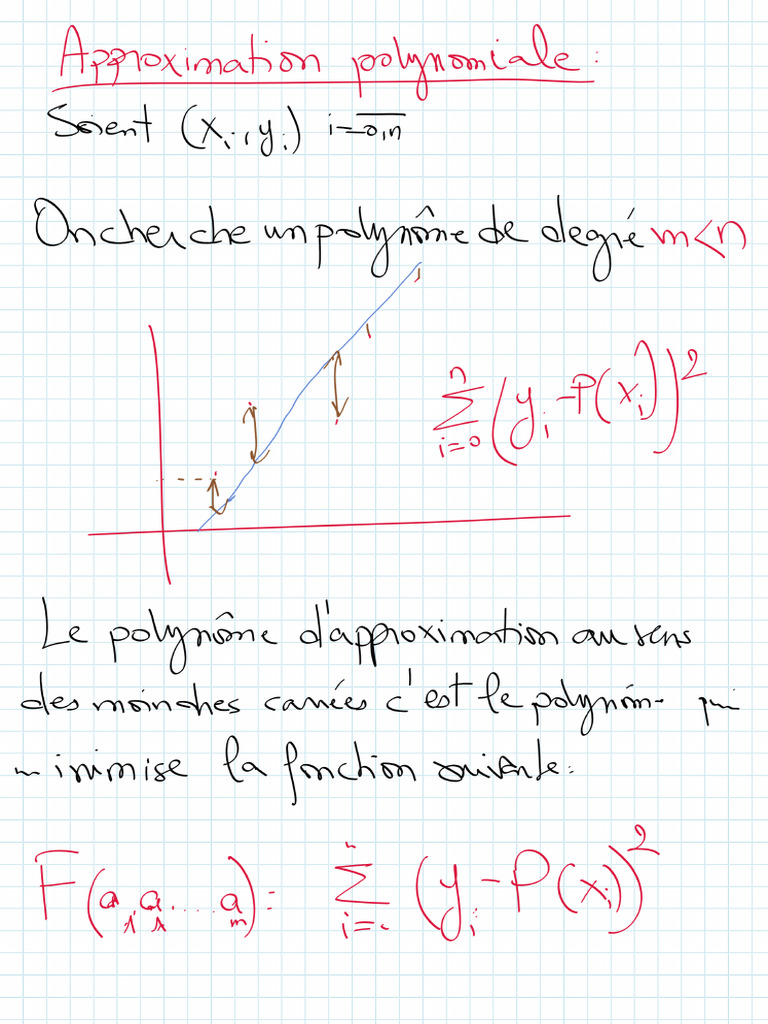 Approximation polynomiale :
Soient (xi, yi) i=0,n
On cherche un polynôme de degré m<n
n
∑ (yi - P(xi))²
i=0
Le polynôme d'approximation au sens
des moindres carrées c'est le polynôm qui
minimise la fonction suivante :
n
F(a, a .... am) : ∑ (yi - P(xi))²
i=